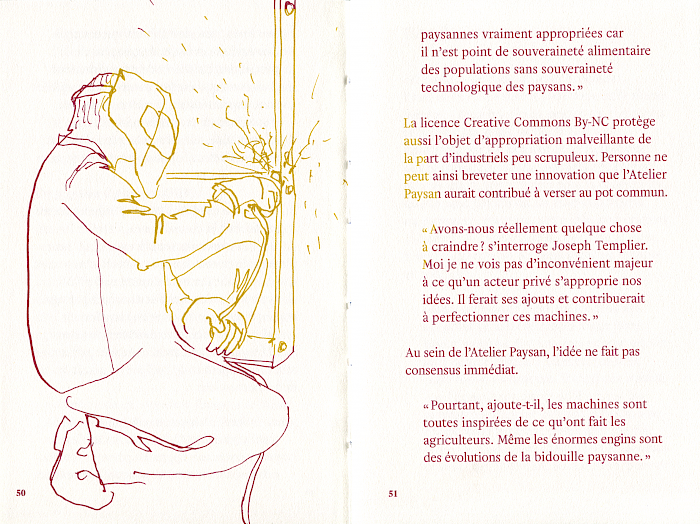 paysannes vraiment appropriées car
il n’est point de souveraineté alimentaire
des populations sans souveraineté
technologique des paysans. »
La licence Creative Commons By-NC protège
aussi l’objet d’appropriation malveillante de
la part d’industriels peu scrupuleux. Personne ne
peut ainsi breveter une innovation que l’Atelier
Paysan aurait contribué à verser au pot commun.
« Avons-nous réellement quelque chose
à craindre ? s’interroge Joseph Templier.
Moi je ne vois pas d’inconvénient majeur
à ce qu’un acteur privé s’approprie nos
idées. Il ferait ses ajouts et contribuerait
à perfectionner ces machines. »
Au sein de l’Atelier Paysan, l’idée ne fait pas
consensus immédiat.
« Pourtant, ajoute-t-il, les machines sont
toutes inspirées de ce qu’ont fait les
agriculteurs. Même les énormes engins sont
des évolutions de la bidouille paysanne. »
50
51